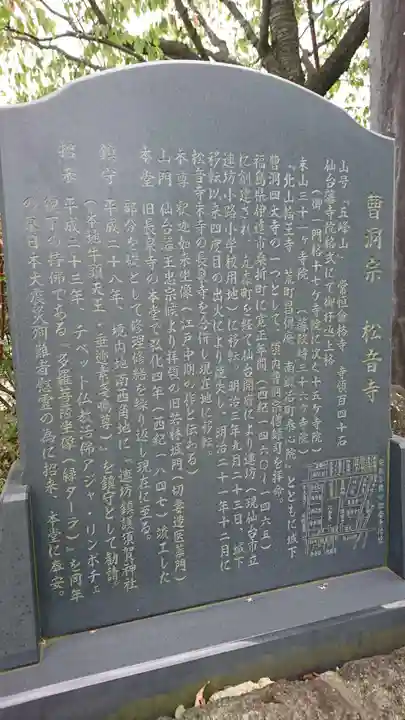 曹洞宗 松音寺
山号『五峰山』 常恒会格寺 寺領百四十石
仙台藩寺院格式にて御盃頂上格
（御一門格十七ケ寺院に次ぐ十五ケ寺院）
末山三十一ケ寺院（藩政時三十六ケ寺院）
『北山輪王寺 荒町昌傳庵 南鍛冶町泰心院』とともに城下
曹洞四大寺の一つとして、領内曹洞宗僧録司を拝命。
福島県伊達市梁川町に寛正年間（西紀一四六〇〜一四六五）
に創建され、
を経て仙台開府により連坊（現仙台市立
連坊小路小学校用地）に移転。明治三年九月二十三日、城下
移転以来四度目の出火により焼失し、明治二十一年十二月に
松音寺末寺の長泉寺を合併し現在地に移転。
本尊 釈迦如来坐像（江戸中期の作と伝わる）
山門 仙台藩主忠宗候より拝領の旧若林城門（切妻造医薬門）
本堂 旧長泉寺の本堂で弘化四年（西紀一八四七）竣工した
部分を残して修理修繕を繰り返し現在に至る。
鎮守 平成二十八年、境内地南西角地に『連坊鎮護須賀神社
（本地牛頭天王・垂迹素戔嗚尊）』を鎮守として勧請。
招来 平成二十三年、チベット仏教活佛アジャ・リンポチェ
猊下の持佛である『多羅菩薩坐像（緑ターラ）』を同年
の東日本大震災罹難者慰霊の為に招来、本堂に奉安。